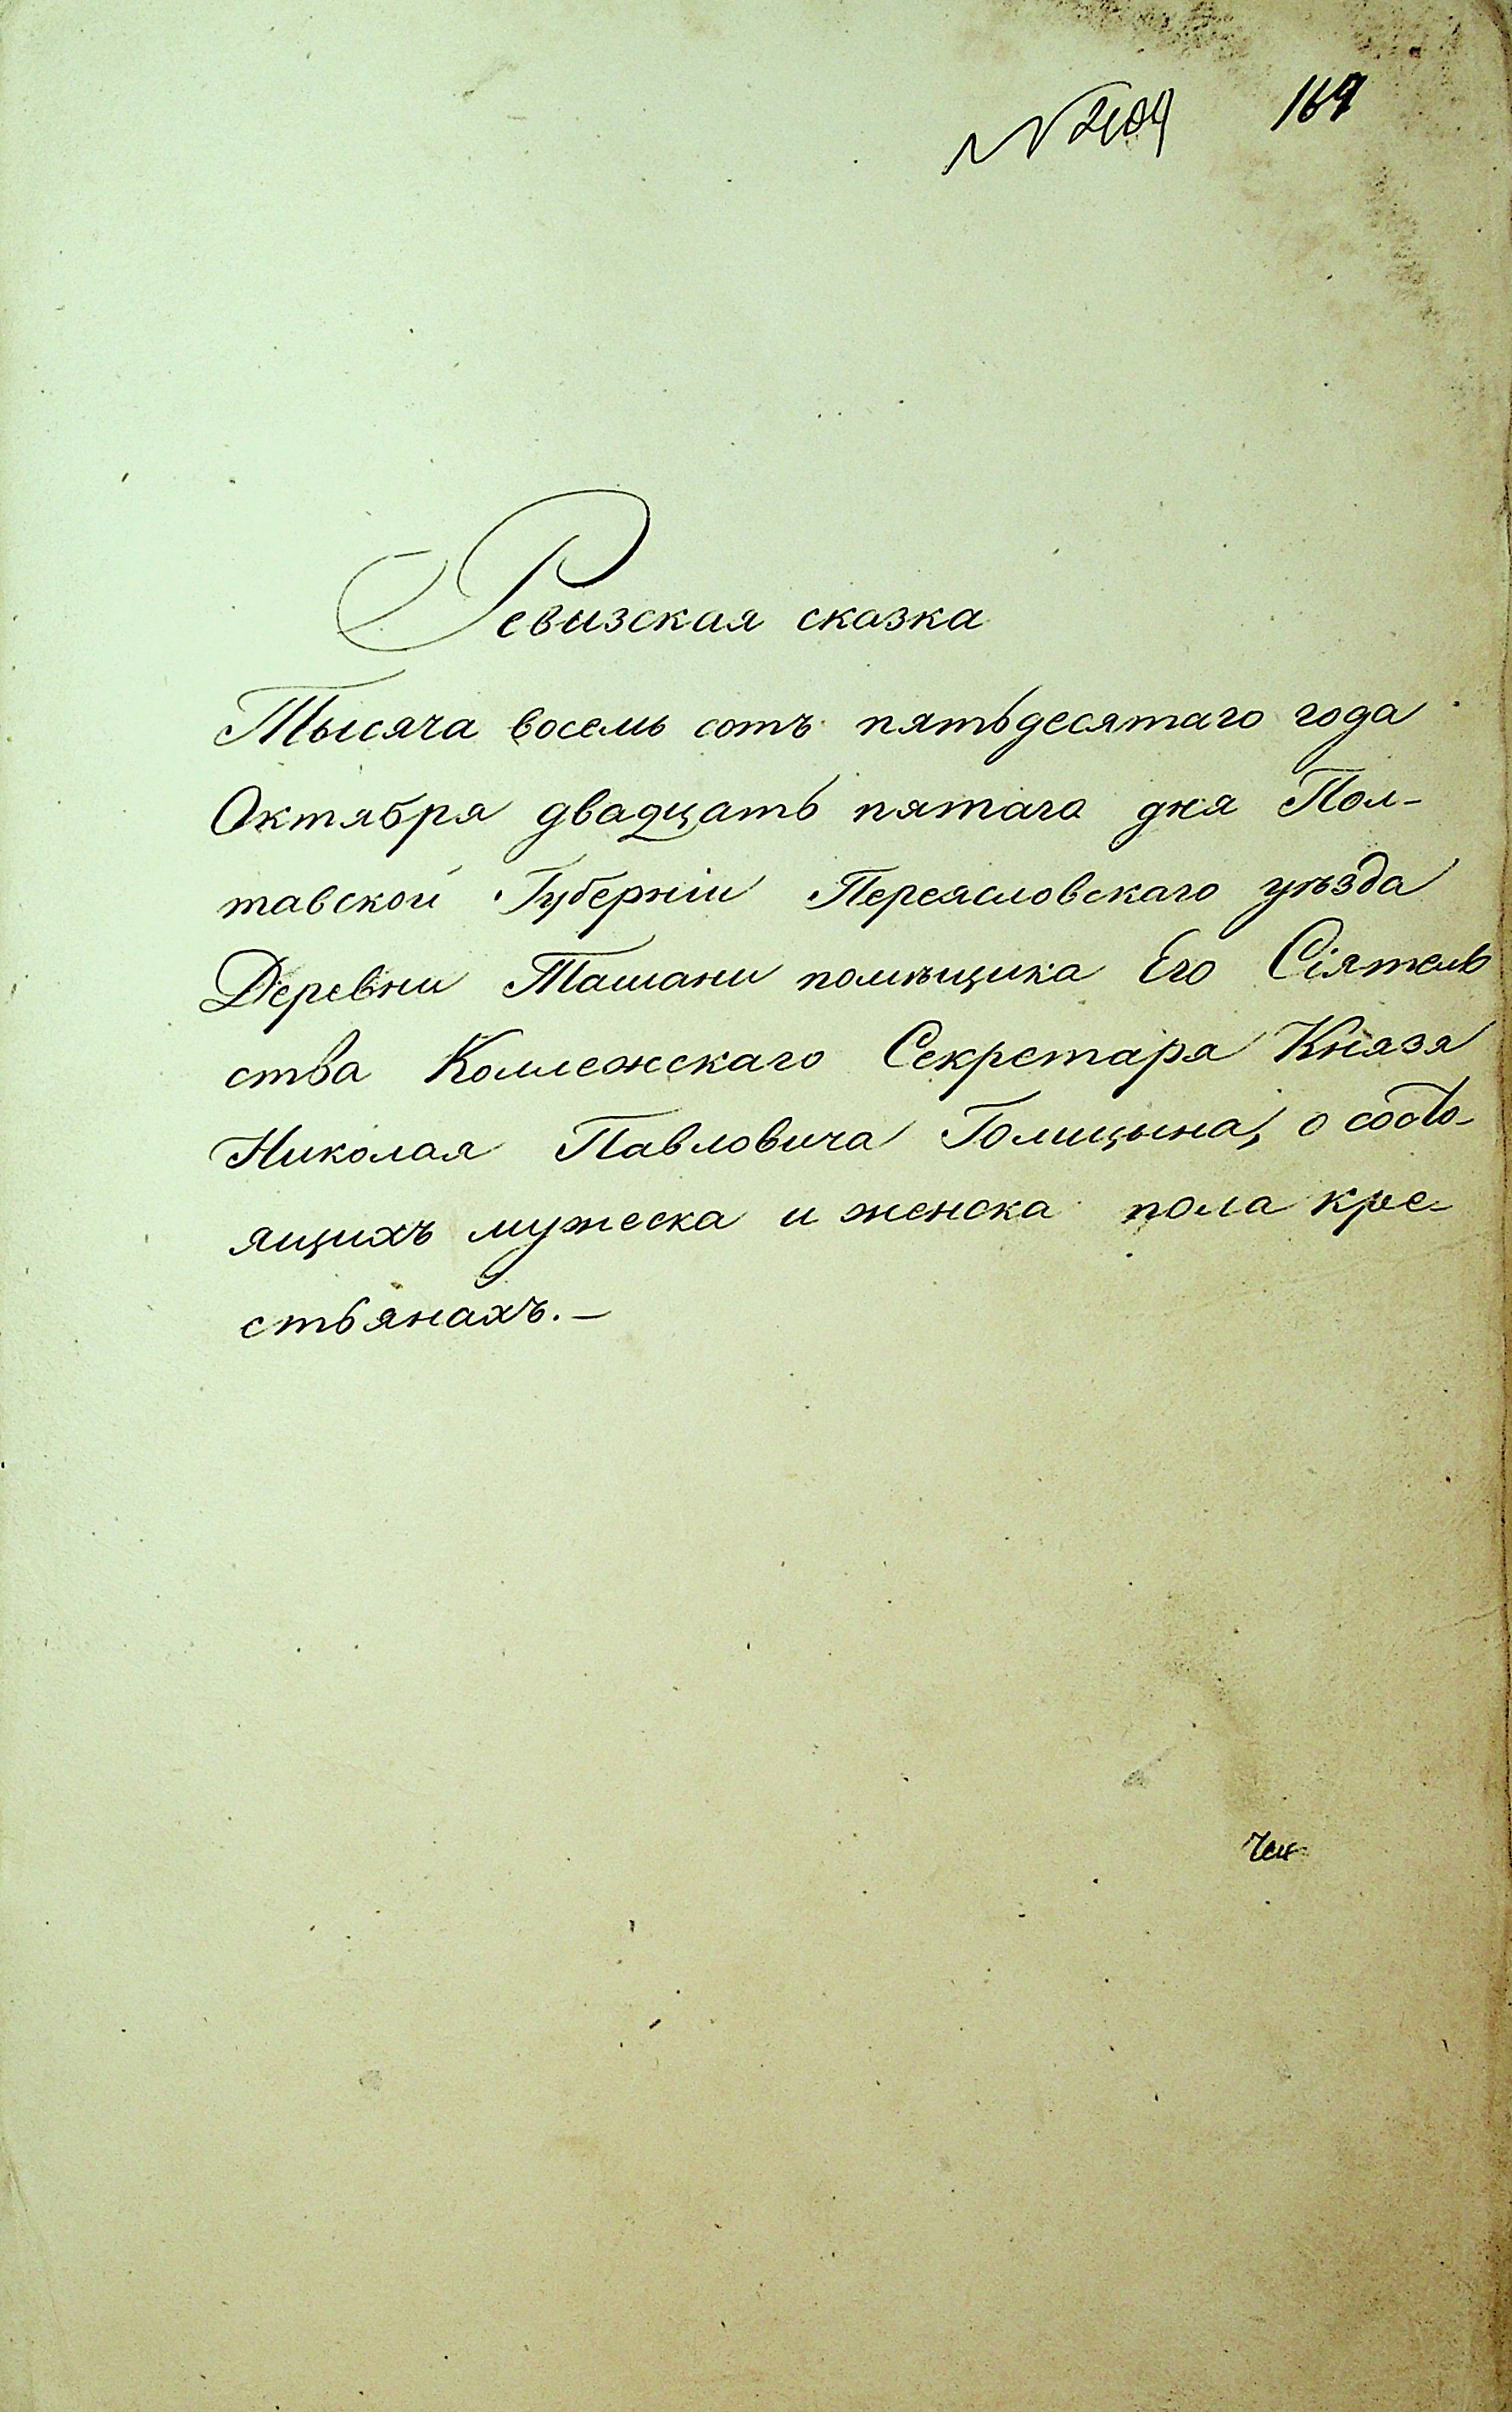 № 2109 167
Ревизская сказка
Тысяча восемь сотъ пятьдесятаго года
Октября двадцать пятаго дня Пол-
тавской Губерніи Переясловскаго уѣзда
Деревни Ташани помѣщика Его Сіятель
ства Коллежскаго Секретаря Князя
Николая Павловича Голицына, о состо-
ящихъ мужеска и женска пола кре-
стьянахъ.-